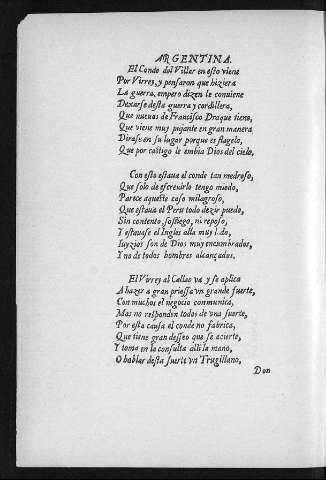 ARGENTINA.
El Conde del Villar en esto viene
Por Virrey, y pensaron que hiziera
La guerra, empero dizen le conuiene
Dexarse desta guerra y cordillera,
Que nueuas de Francisco Draque tiene,
Que viene muy pujante en gran manera
Dirase en su lugar porque es flagelo,
Que por castigo le embia Dios del cielo,
Con esto estaua el conde tan medroso,
Que solo de escreuirlo tengo miedo,
Parece aqueste caso milagroso,
Que estaua el Peru todo dezir puedo,
Sin contento, sossiego, ni reposo,
Y estauase el Ingles alla muy ledo,
Iuyzios son de Dios muy encumbrados,
Y no de todos hombres alcançados.
El Virrey al Callao va y se aplica
A hazer a gran priessa vn grande fuerte,
Con muchos el negocio communica,
Mas no responden todos de vna suerte,
Por esta causa el conde no fabrica,
Que tiene gran desseo que se acierte,
Y toma en la consulta alli la mano,
O hablar desta suerte vn Trugillano,
Don